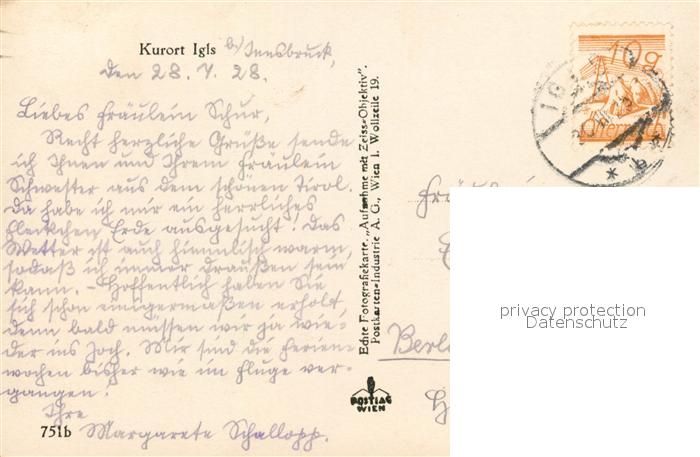 Kurort Igls b/ Innsbruck,
den 28. 7. 28.
Liebes Fräulein Schur,
Recht herzliche Grüße sende
ich Ihnen und Ihrem Fräulein
Schwester aus dem schönen Tirol.
Da habe ich mir ein herrliches
Fleckchen Erde ausgesucht! Das
Wetter ist auch himmlisch warm,
sodaß ich immer draußen sein
kann. – Hoffentlich haben Sie
sich schon einigermaßen erholt,
denn bald müssen wir ja wie-
der ins Joch. Mir sind die Ferien-
wochen bisher wie im Fluge ver-
gangen!
Ihre
Margarete Schallopp.
751b
Echte Fotografiekarte. „Aufnahme mit Zeiss-Objektiv".
Postkarten-Industrie A. G., Wien I. Wollzeile 19.
POSTIAG
WIEN
10g
Österreich
IG
Berl
privacy protection
Datenschutz